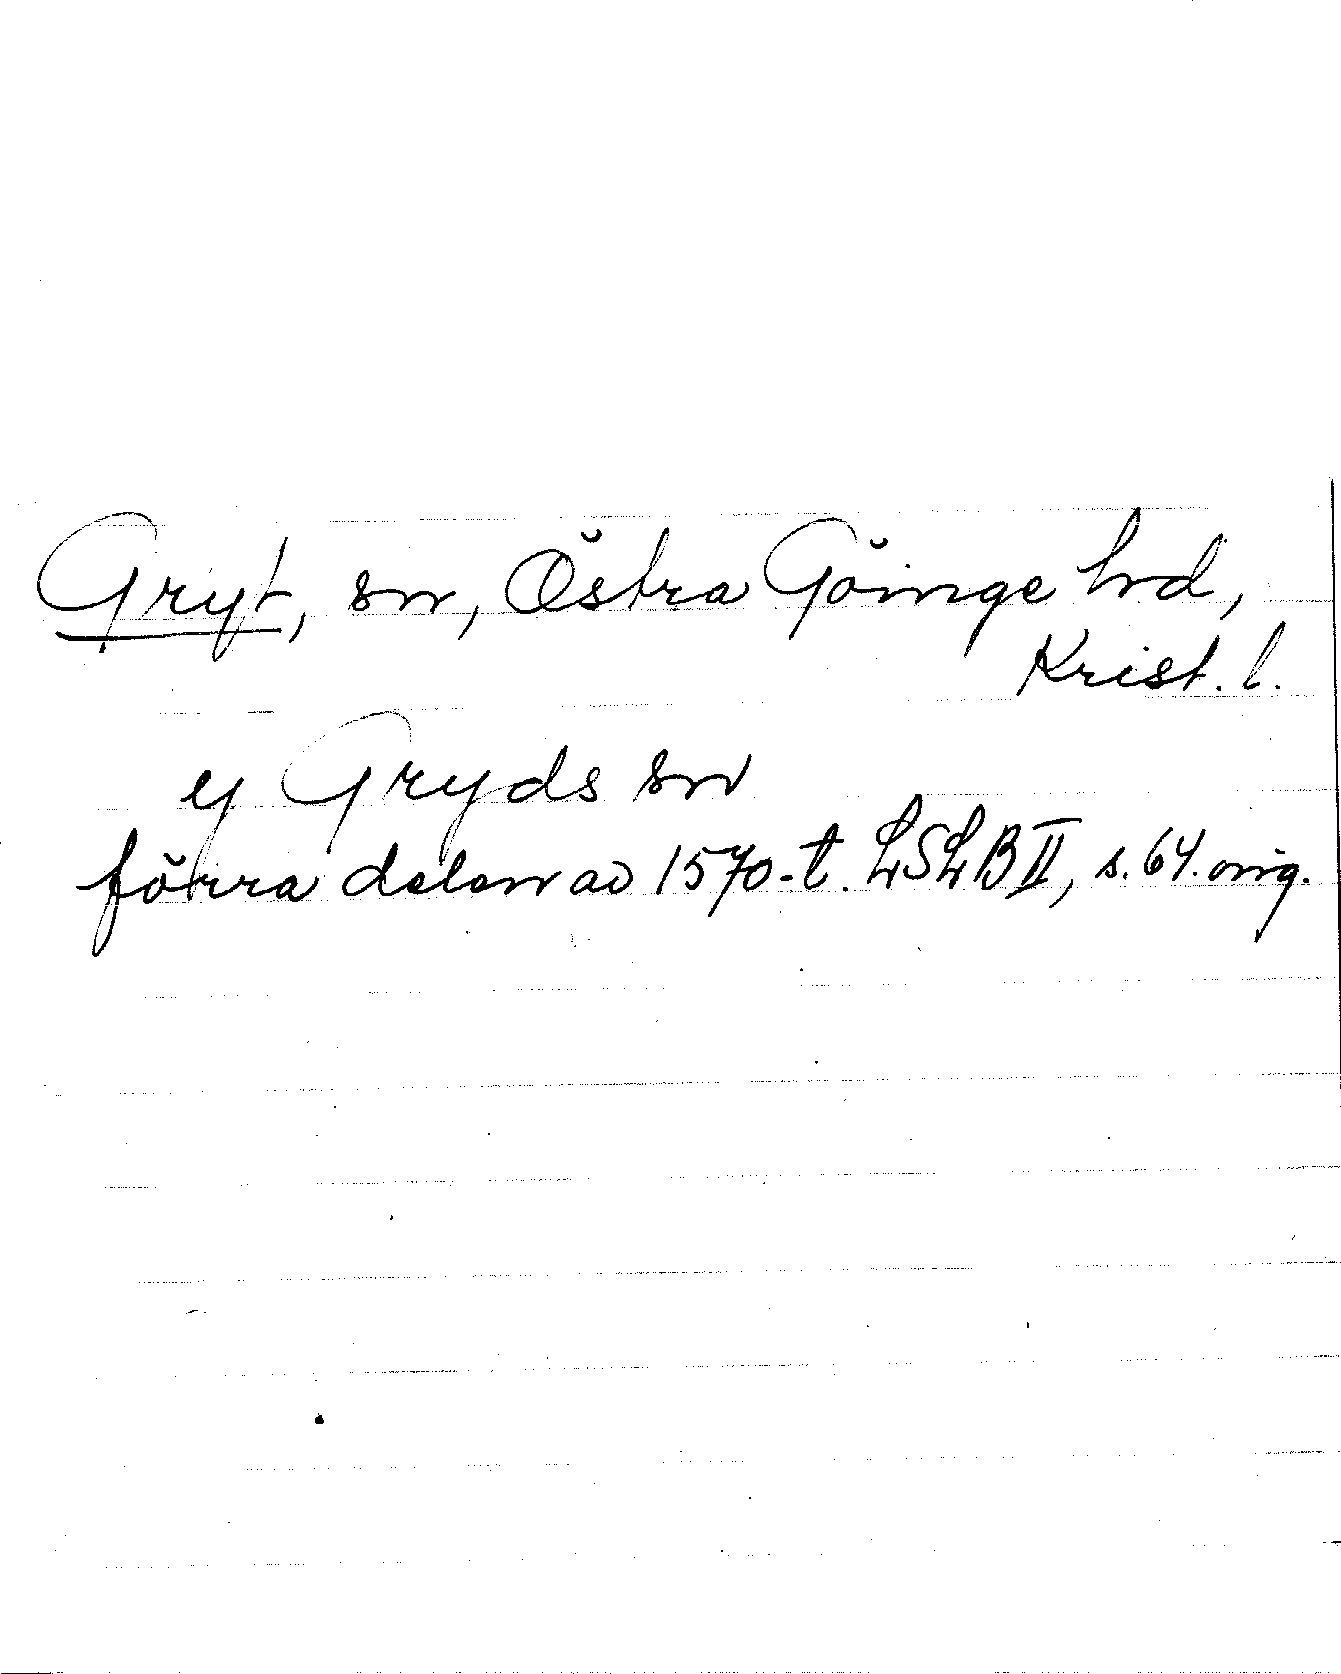 Gryt, sn, Östra Göinge hd,
Krist. l.
y Gryds sn
förra delen av 1570-t. LSLB II, s. 64. orig.